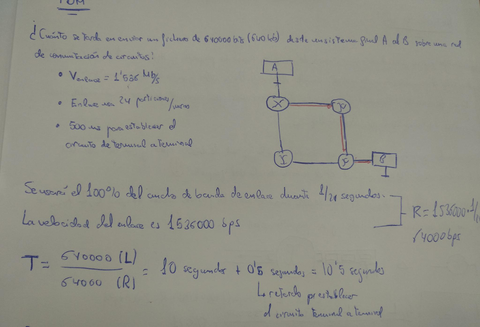 TDM
¿Cuánto se tarda en enviar un fichero de 640000 bits (640 kb) desde un sistema final A al B sobre una red
de conmutación de circuitos:
• Venlace = 1'536 Mb/s
• Enlace usa 24 particiones/
• 500 ms para establecer el
circuito de terminal a terminal
A
X
B
Se usará el 100% del ancho de banda de enlace durante 1/24 segundos.
La velocidad del enlace es 1536000 bps
R = 1536000 · 1/
64000 bps
T = 640000 (L) / 64000 (R) = 10 segundos + 0'5 segundos = 10'5 segundo
↳ retardo por establecer
el circuito terminal a terminal